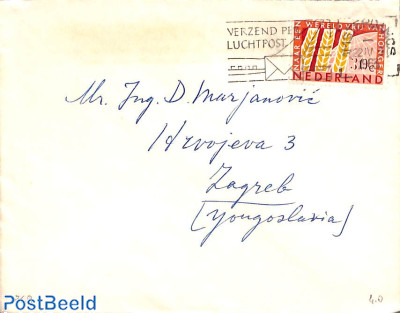 VERZEND PE
LUCHTPOST
NAAR EEN WERELD VRIJ VAN HONGER
NEDERLAND
Mr. Ing. D. Marjanović
Hrvojeva 3
Zagreb
(Yougoslavia)
4.0
PostBeeld